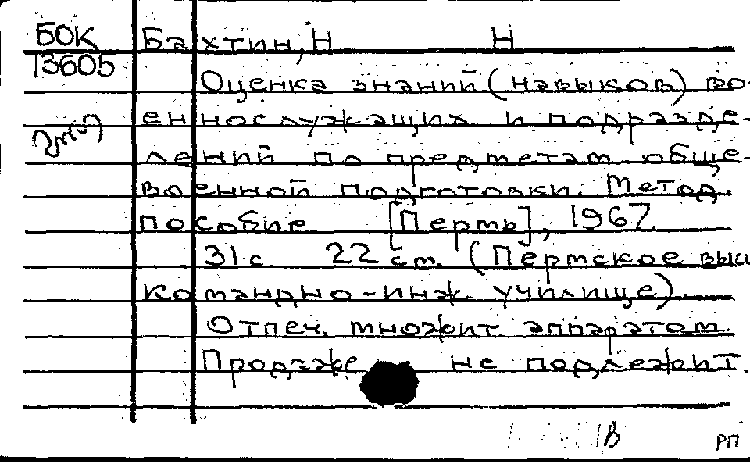 БОК
13605
Бахтин, Н Н
Оценка знаний (навыков) во-
еннослужащих и подразде-
лений по предметам обще-
военной подготовки. Метод.
пособие [Пермь], 1967.
31 с 22 см. (Пермское высш
командно-инж. училище).
Отпеч. множит. аппаратом.
Продаже не подлежит.
В РП